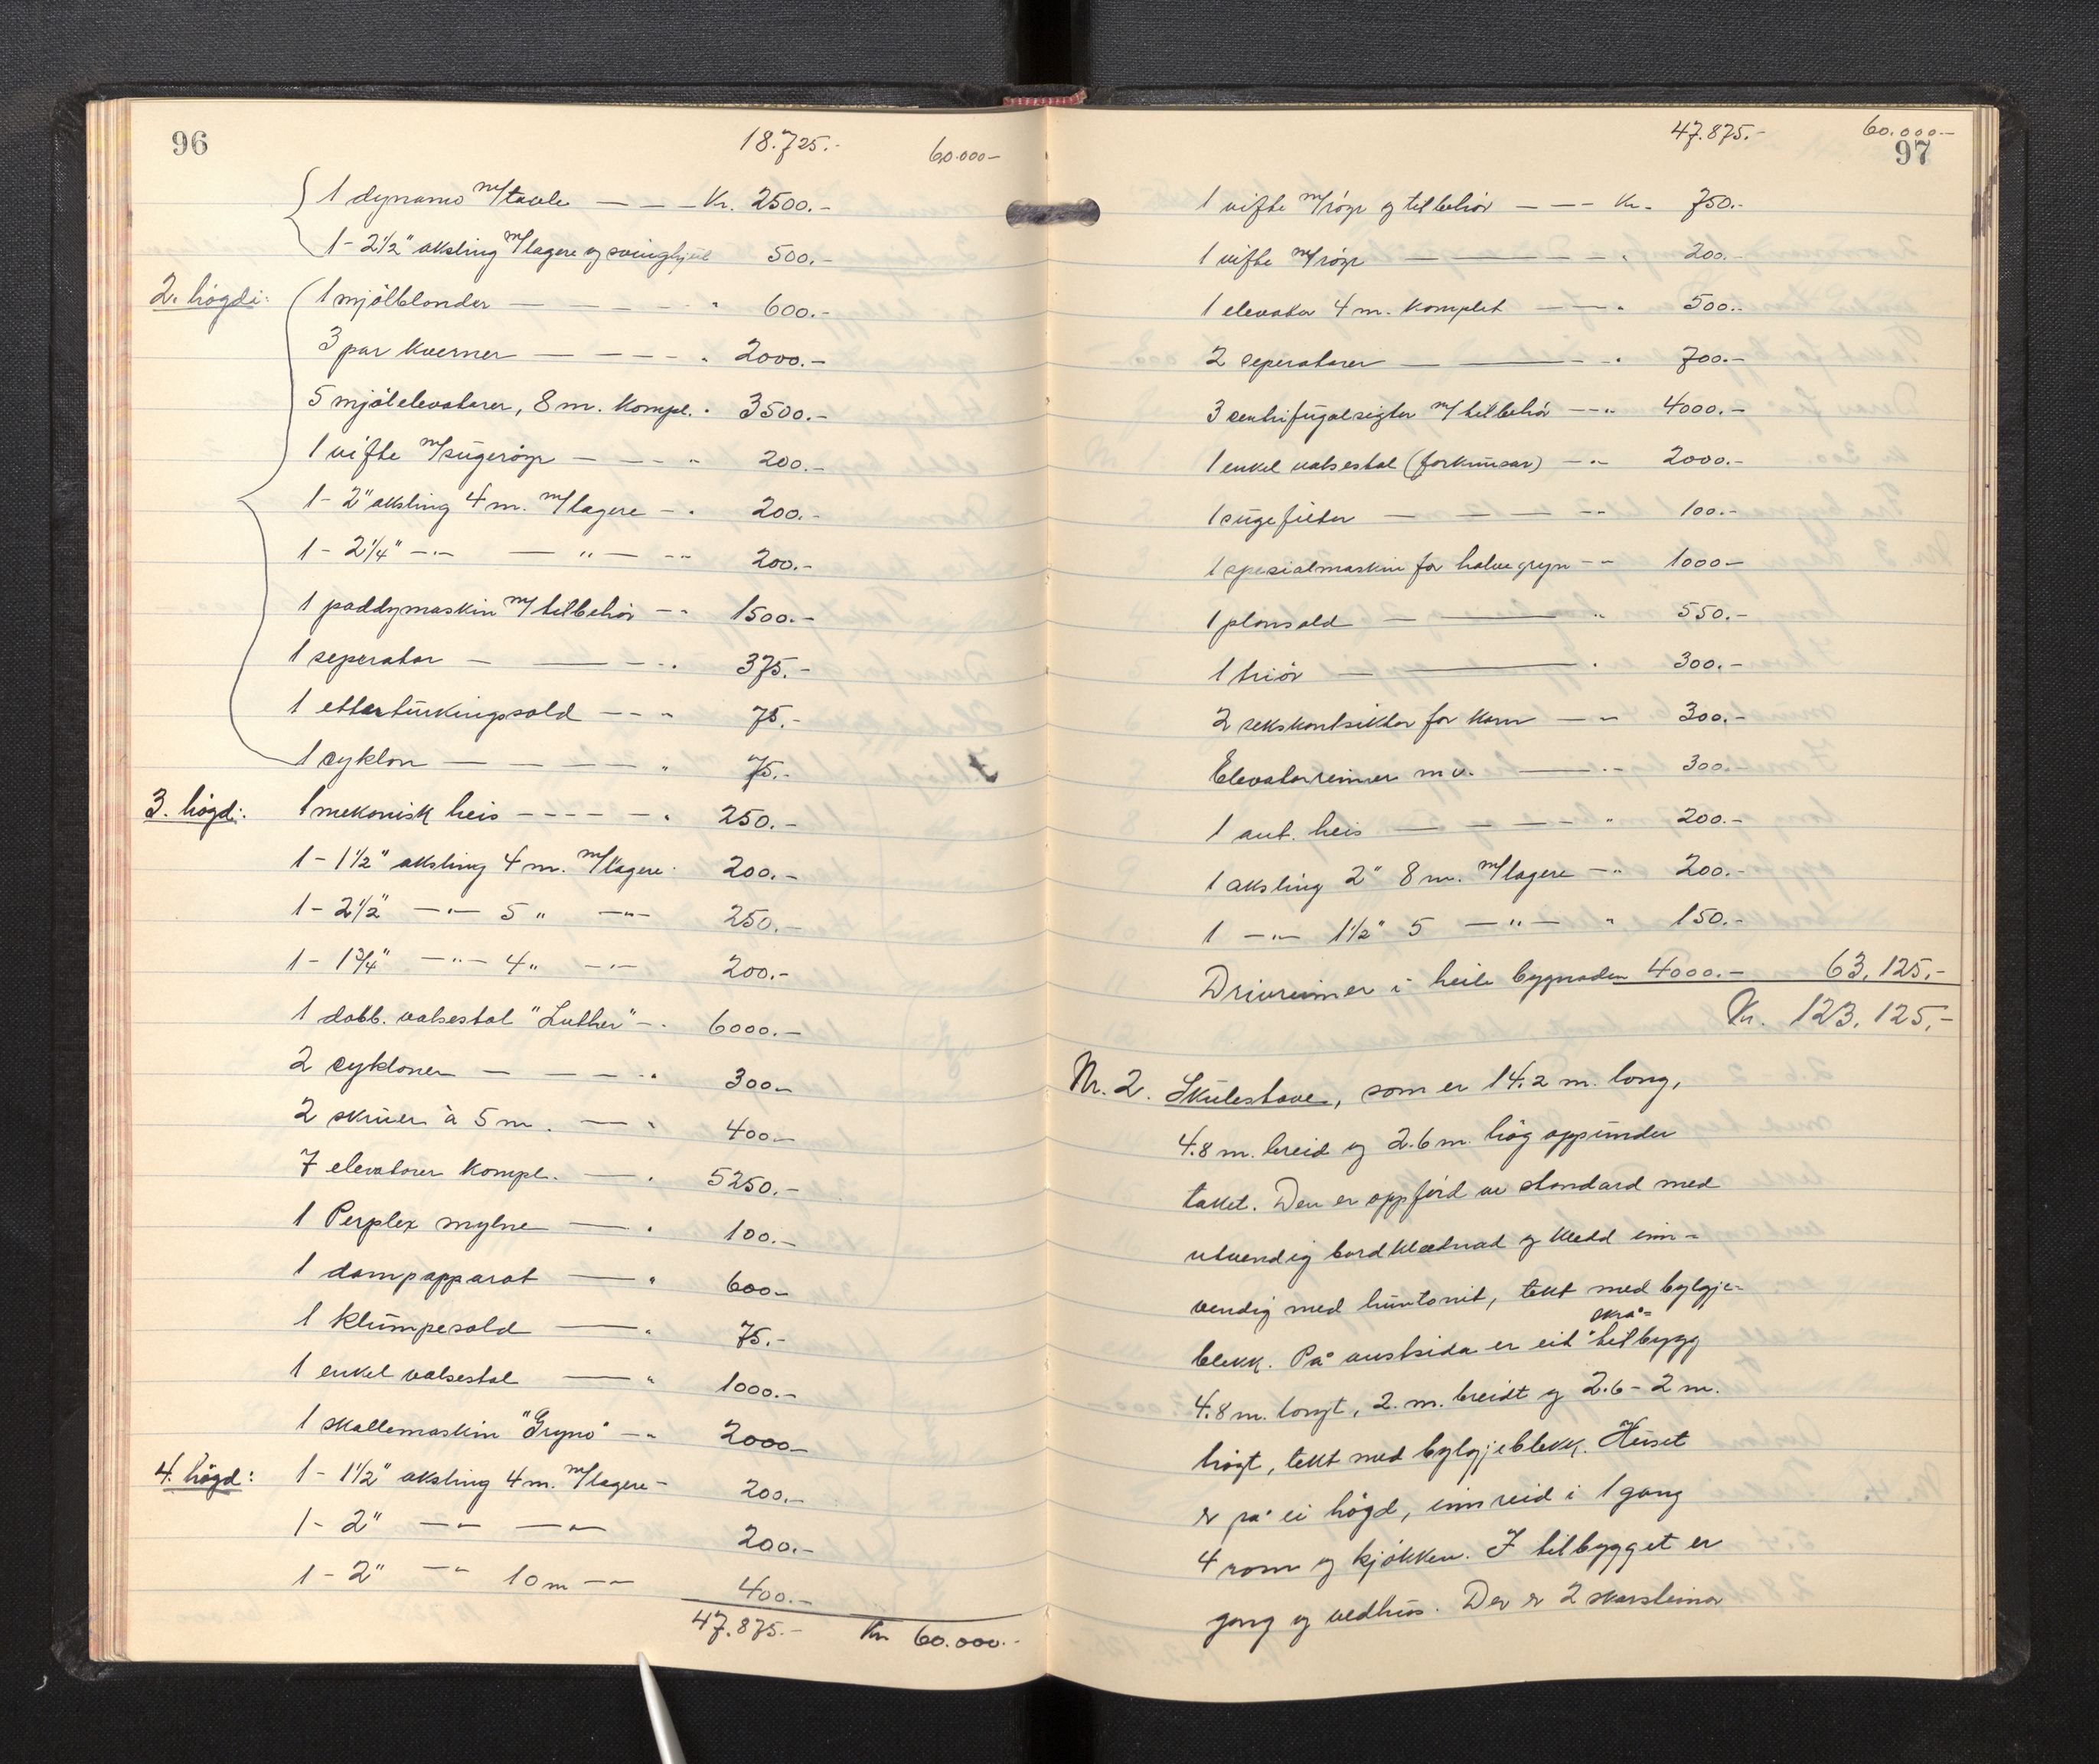 96
18.725.-
60.000-
1 dynamo m/tavle — — — Kr. 2500.-
1 - 2½" aksling m/lagere og svinghjul 500.-
2. högdi: 1 mjölblander — — — — " 600.-
3 par kverner — — — - " 2000.-
5 mjölelevatorer, 8 m. kompl. " 3500.-
1 vifte m/sugerøyr — — — " 200.-
1 - 2" aksling 4 m. m/lagere - " 200.-
1 - 2¼" -"- — " — -"- 200.-
1 paddymaskin m/tilbehör -- 1500.-
1 seperator — — - - " 375.-
1 ettertürkingsold — - " 75.-
1 cyklon — — — — " 75.-
3. högd: 1 mekanisk heis - - - - - " 250.-
1 - 1½" aksling 4 m. m/lagere " 200.-
1 - 2½" -"- 5 " -"- 250.-
1 - 1¾" -"- 4 " -"- 200.-
1 dobb. valsestol "Luther" - " 6000.-
2 cykloner — — — - " 300.-
2 skruer à 5 m. — " 400.-
7 elevatorer kompl. — " 5250.-
1 Perplex mylne — " 100.-
1 dampapparat — " 600-
1 klümpesold — " 75.-
1 enkel valsestol — " 1000.-
1 skallemaskin "Gryno" - " 2000-
4. högd: 1 - 1½" aksling 4 m. m/lagere - 200.-
1 - 2" -"- -"- 200.-
1 - 2" -"- 10 m -"- 400.-
47.875.- Kr 60.000.-
47.875.-
60.000-
97
1 vifte m/röyr og tilbehör — — - Kr. 750.-
1 vifte m/röyr — — — " 200.-
1 elevator 4 m. komplet — - " 500.-
2 seperatorer — — - " 700.-
3 sentrifügalsigter m/tilbehör - - " 4000.-
1 enkel valsestol (forknusar) - " 2000.-
1 sugefilter — — — -- 100.-
1 spesialmaskin for halve gryn -- 1000-
1 plansold — — " 550.-
1 triör — — " 300.-
2 sekskantsiktor for korn — " 300.-
Elevatorreimer m.v. — - " 300.-
1 aut. heis — — — - " 200.-
1 aksling 2" 8 m. m/lagere - " 200.-
1 -"- 1½" 5 -"- " 150.-
Drivreimer i heile bygnaden 4000.- 63.125.-
Kr. 123.125.-
Nr. 2. Skülestove, som er 14.2 m. long,
4.8 m. breid og 2.6 m. hög oppünder
taket. Den er oppförd av standard med
utvendig bordklædnad og kledd inn-
vendig med hüntonit, tekt med bylgje-
blekk. På austsida er eit skrå-tilbygg
4.8 m. longt, 2. m. breidt og 2.6 - 2 m.
högt, tekt med bylgjeblekk. Hüset
er på ei högd, innreid i 1 gang
4 rom og kjökken. I tilbygget er
gang og vedhüs. Der er 2 skorsteinar